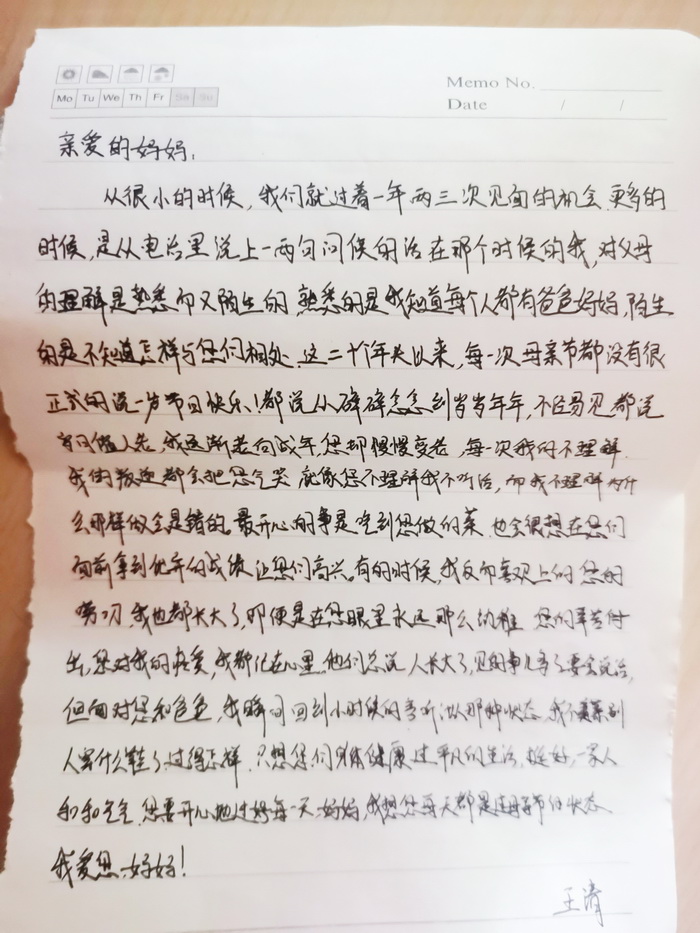 Mo Tu We Th Fr Sa Su
Memo No.
Date / /
亲爱的妈妈:
从很小的时候,我们就过着一年两三次见面的机会.更多的
时候,是从电话里说上一两句问候的话在那个时候的我,对父母
的理解是熟悉而又陌生的,熟悉的是我知道每个人都有爸爸妈妈,陌生
的是不知道怎样与您们相处.这二十个年头以来,每一次母亲节都没有很
正式的说一声节日快乐!都说从碎碎念念到岁岁年年,不经易见都说
岁月催人老,我逐渐走向成年,您却慢慢变老,每一次我的不理解.
我的叛逆都会把您气哭 就像您不理解我不听话,而我不理解为什
么那样做会是错的.最开心的事是吃到您做的菜.也会很想在您们
面前拿到优异的成绩让您们高兴.有的时候,我反而喜欢上的您的
唠叨,我也都长大了,即便是在您眼里永远那么幼稚 您的辛苦付
出,您对我的疼爱,我都记在心里.他们总说 人长大了,见的事儿多了要会说话,
但面对您和爸爸,我瞬间回到小时候的 那种状态.我不 别
人穿什么鞋了.过得怎样.只想您们身体健康过平凡的生活,挺好,一家人
和和气气.您要开心地过好每一天.妈妈,我想您每天都是母亲节的状态
我爱您.妈妈!
王清